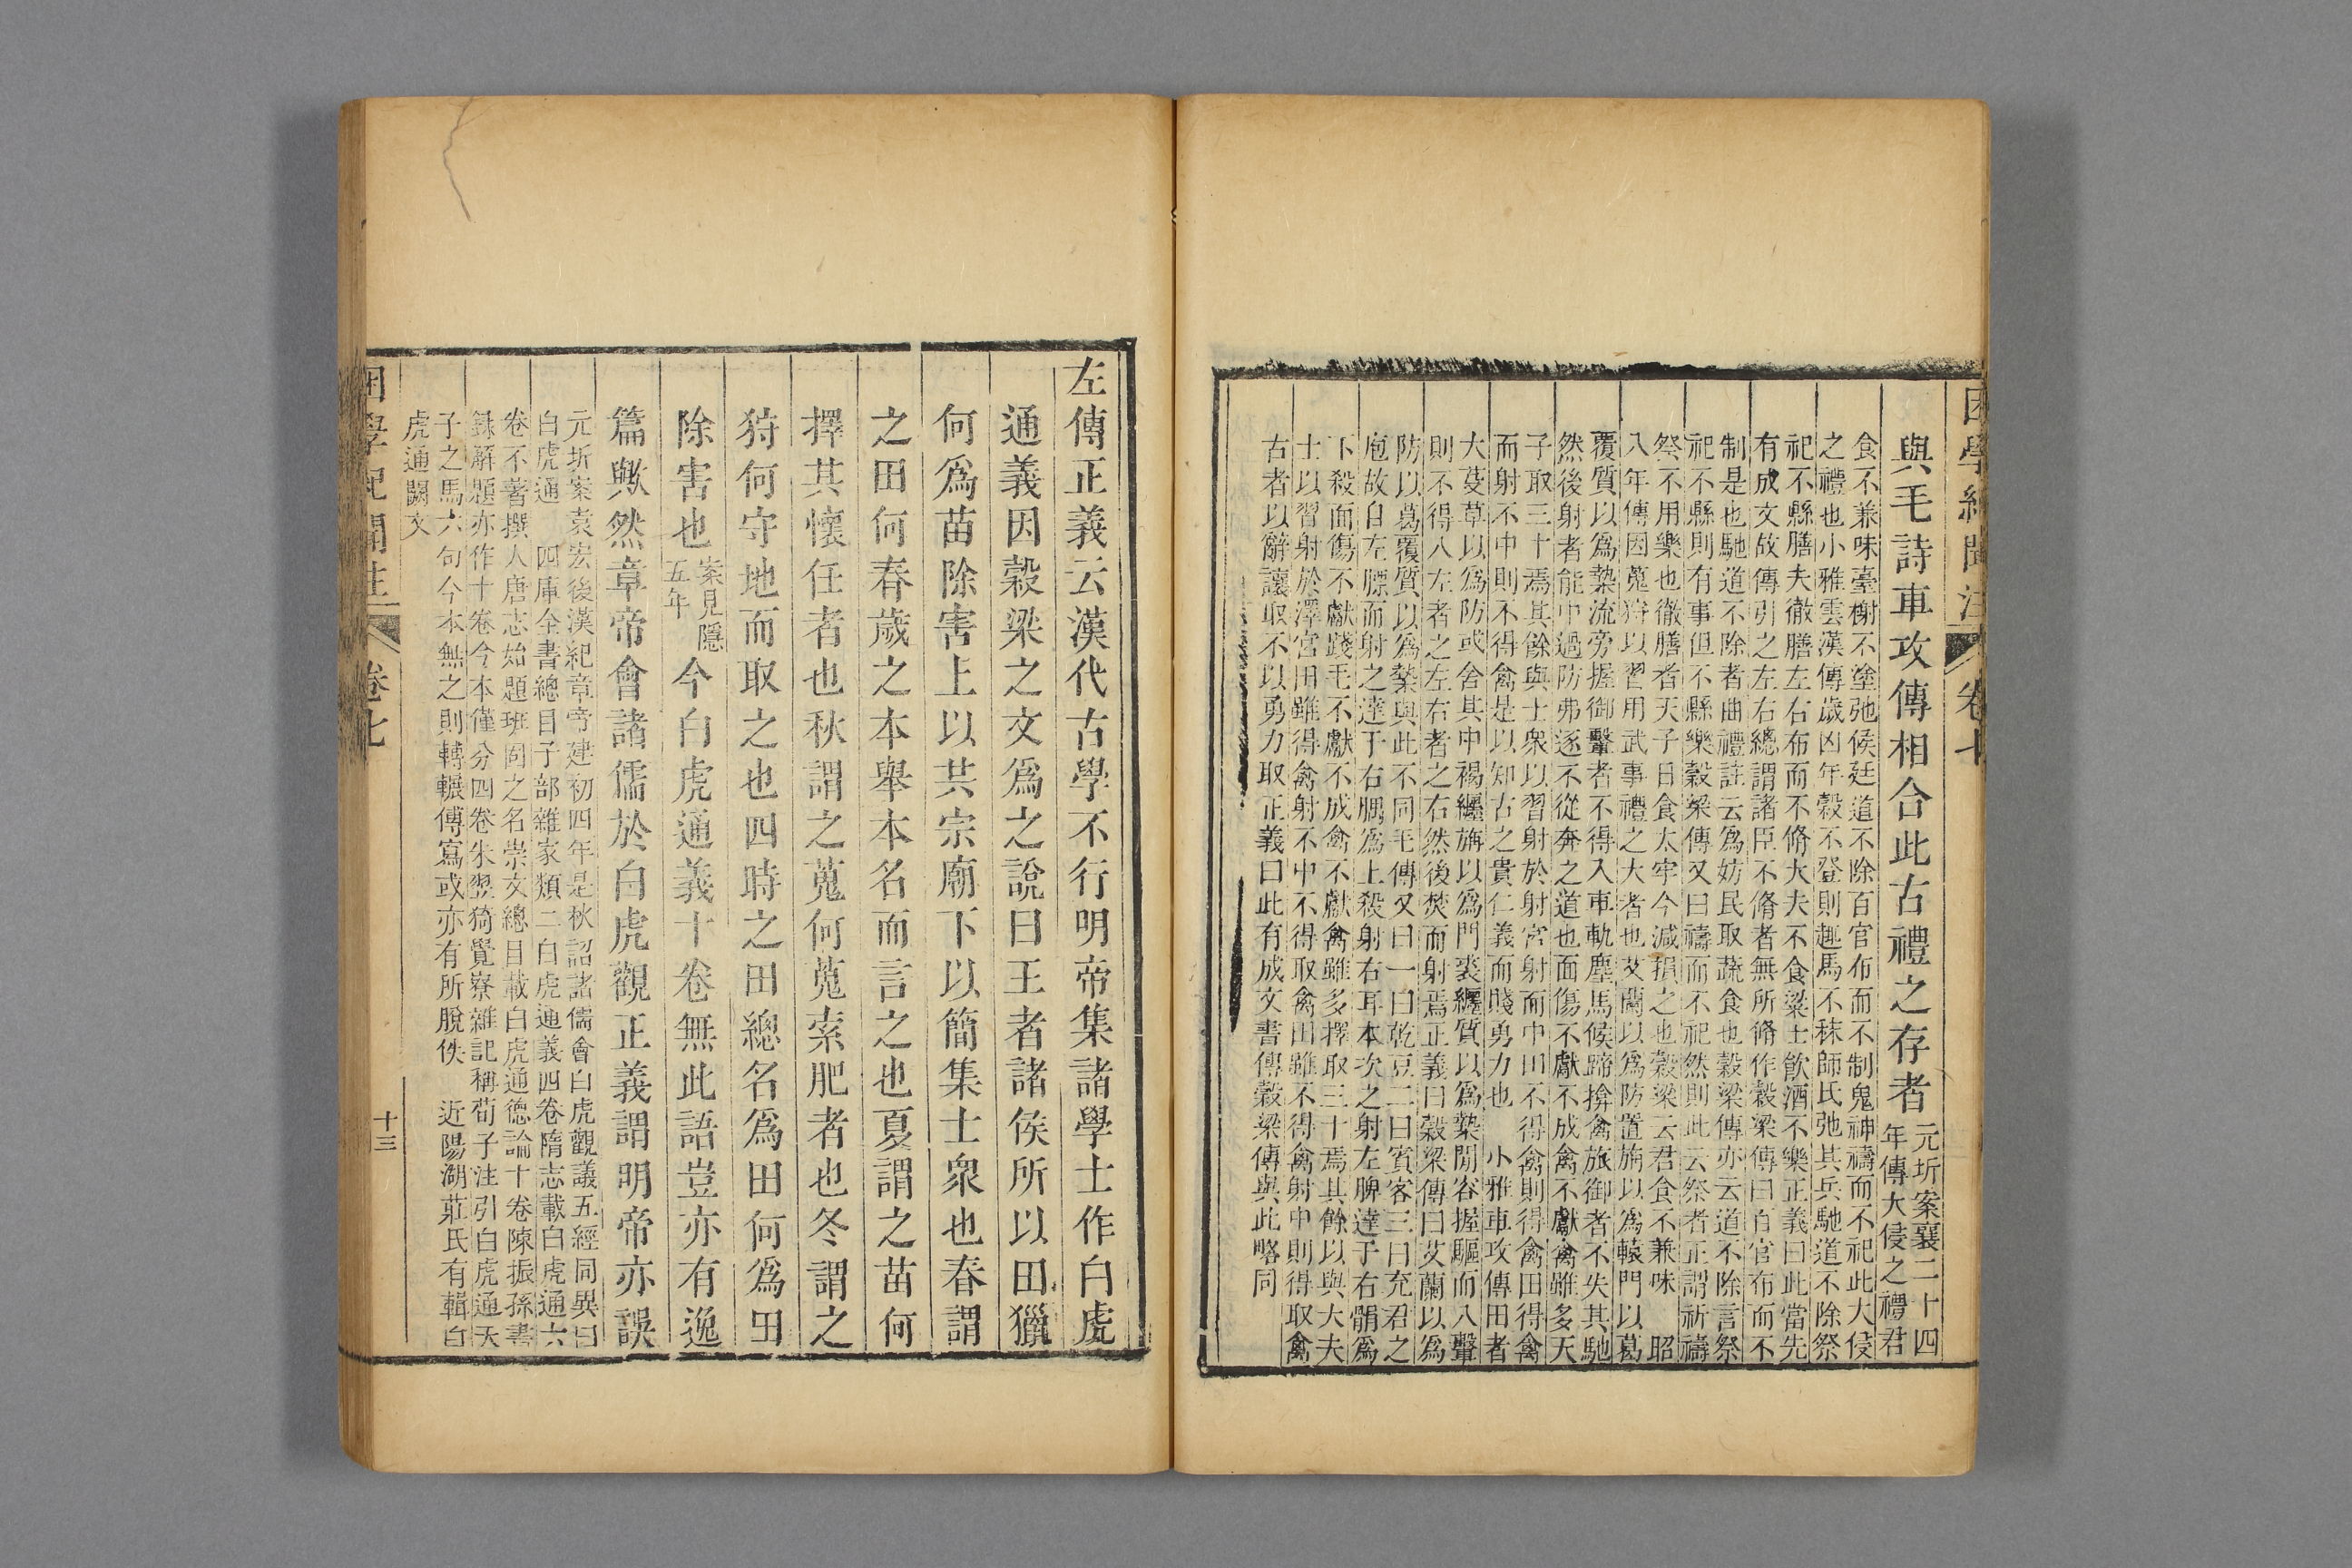 困學紀聞注 卷七
與毛詩車攻傳相合此古禮之存者元圻案襄二十四
年傳大侵之禮君
食不兼味臺榭不塗弛候廷道不除百官布而不制鬼神禱而不祀此大侵
之禮也小雅雲漢傳歲凶年穀不登則趣馬不秣師氏弛其兵馳道不除祭
祀不縣膳夫徹膳左右布而不脩大夫不食粱士飲酒不樂正義曰此當先
有成文故傳引之左右總謂諸臣不脩者無所脩作穀梁傳曰百官布而不
制是也馳道不除者曲禮註云為妨民取蔬食也穀梁傳亦云道不除言祭
祀不縣則有事但不縣樂穀梁傳又曰禱而不祀然則此云祭者正謂祈禱
祭不用樂也徹膳者天子日食太牢今減損之也穀梁云君食不兼味 昭
八年傳因蒐狩以習用武事禮之大者也艾蘭以為防置旃以為轅門以葛
覆質以為槷流旁握御轚者不得入車軌塵馬候蹄揜禽旅御者不失其馳
然後射者能中過防弗逐不從奔之道也面傷不獻不成禽不獻禽雖多天
子取三十焉其餘與士衆以習射於射宮射而中田不得禽則得禽田得禽
而射不中則不得禽是以知古之貴仁義而賤勇力也 小雅車攻傳田者
大芟草以為防或舍其中褐纏旃以為門裘纏質以為槷閒容握驅而入轚
則不得入左者之左右者之右然後焚而射焉正義曰穀梁傳曰艾蘭以為
防以葛覆質以為槷與此不同毛傳又曰一曰乾豆二曰賓客三曰充君之
庖故自左膘而射之達于右腢為上殺射右耳本次之射左髀達于右䯚為
下殺面傷不獻踐毛不獻不成禽不獻禽雖多擇取三十焉其餘以與大夫
士以習射於澤宮田雖得禽射不中不得取禽田雖不得禽射中則得取禽
古者以辭讓取不以勇力取正義曰此有成文書傳穀梁傳與此略同
左傳正義云漢代古學不行明帝集諸學士作白虎
通義因穀梁之文為之說曰王者諸侯所以田獵
何為苗除害上以共宗廟下以簡集士衆也春謂
之田何春歲之本舉本名而言之也夏謂之苗何
擇其懷任者也秋謂之蒐何蒐索肥者也冬謂之
狩何守地而取之也四時之田總名為田何為田
除害也案見隱
五年今白虎通義十卷無此語豈亦有逸
篇歟然章帝會諸儒於白虎觀正義謂明帝亦誤
元圻案袁宏後漢紀章帝建初四年是秋詔諸儒會白虎觀議五經同異曰
白虎通 四庫全書總目子部雜家類二白虎通義四卷隋志載白虎通六
卷不著撰人唐志始題班固之名崇文總目載白虎通德論十卷陳振孫書
錄解題亦作十卷今本僅分四卷朱翌猗覺寮雜記稱荀子注引白虎通天
子之馬六句今本無之則轉輾傳寫或亦有所脫佚 近陽湖莊氏有輯白
虎通闕文
困學紀聞注 卷七 十三